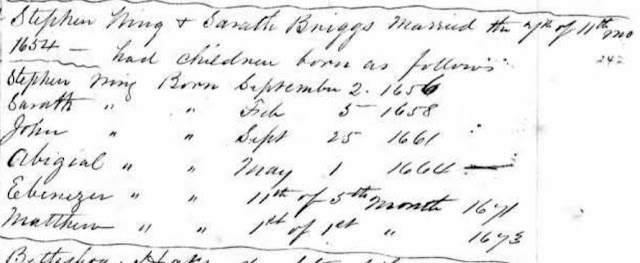 Stephen Wing & Sarath Briggs Married the 7th of 11th mo
1654 — had children born as follows
242
Stephen Wing Born September 2. 1656
Sarath " " Feb 5 1658
John " " Sept 25 1661
Abigial " " May 1 1664 —
Ebenezer " " 11th of 5th Month 1671
Matthew " " 1st of 1st " 1673